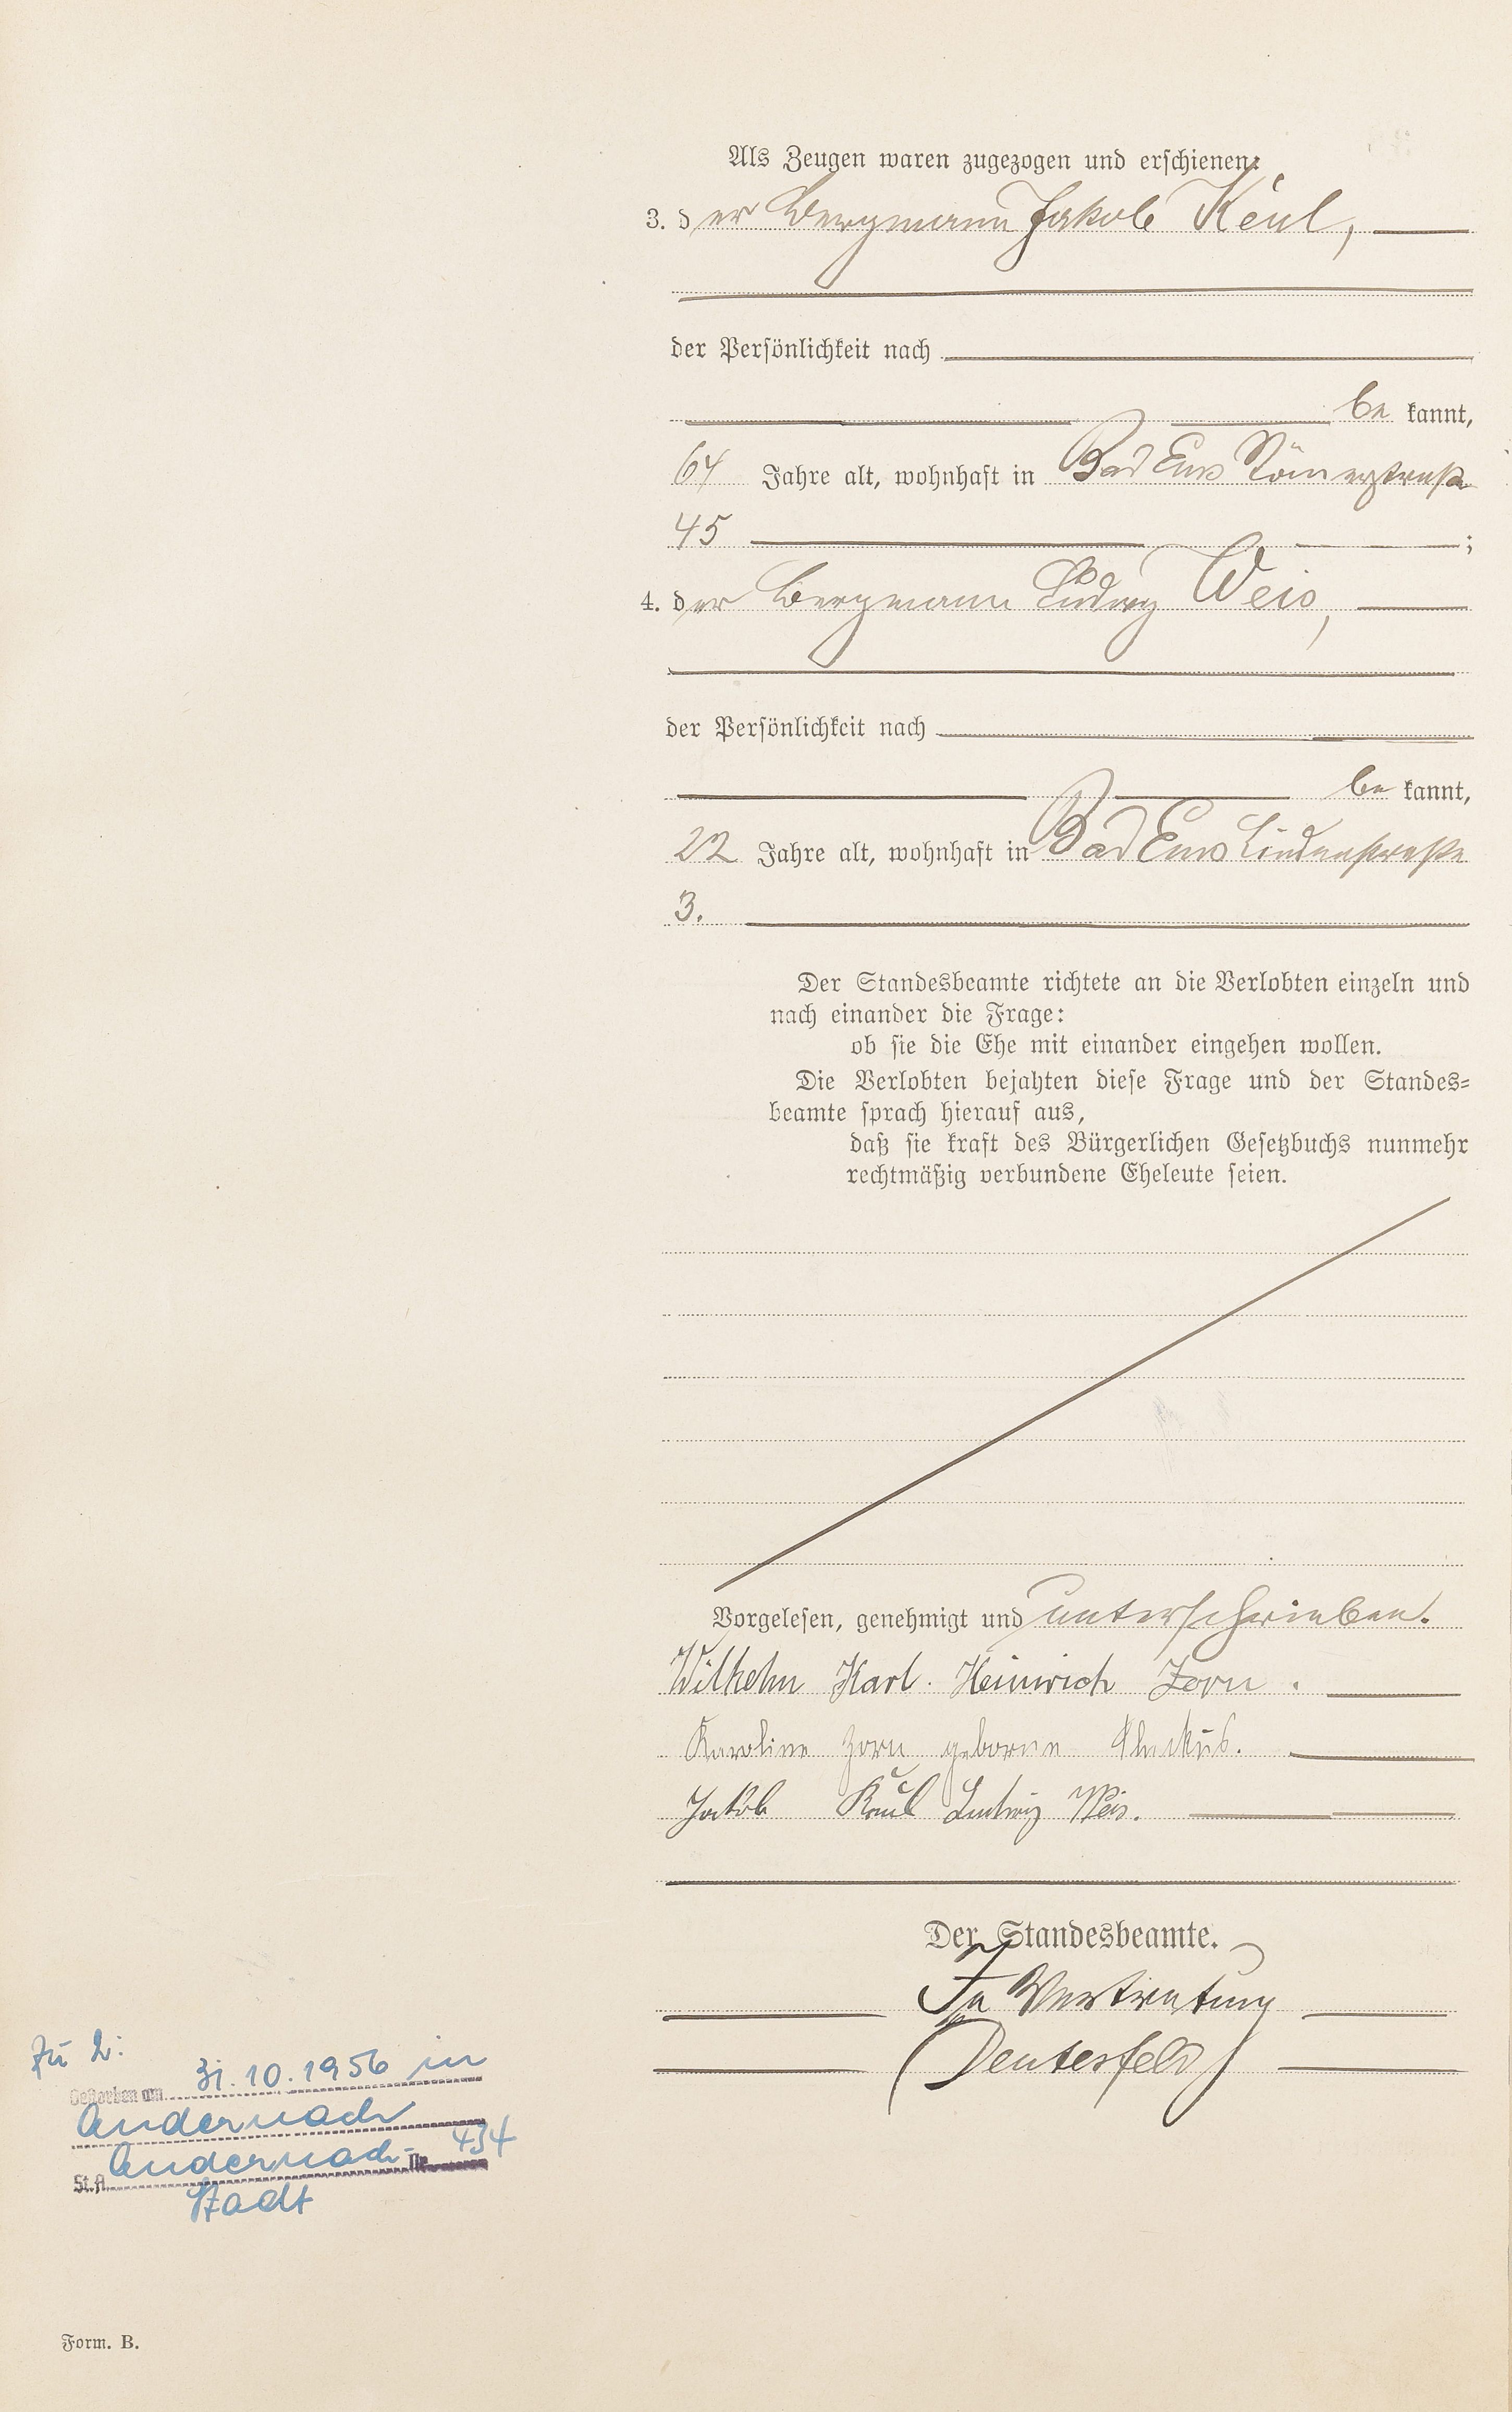 Als Zeugen waren zugezogen und erschienen:
3. der Bergmann Jakob Keul,
der Persönlichkeit nach
bekannt,
64 Jahre alt, wohnhaft in Bad Ems Römerstraße
45 ;
4. der Bergmann Ludwig Weis,
der Persönlichkeit nach
bekannt,
22 Jahre alt, wohnhaft in Bad Ems Lindenstraße
3.
Der Standesbeamte richtete an die Verlobten einzeln und
nach einander die Frage:
ob sie die Ehe mit einander eingehen wollen.
Die Verlobten bejahten diese Frage und der Standes=
beamte sprach hierauf aus,
daß sie kraft des Bürgerlichen Gesetzbuchs nunmehr
rechtmäßig verbundene Eheleute seien.
Vorgelesen, genehmigt und unterschrieben.
Wilhelm Karl Heinrich Zorn.
Karoline Zorn geborne
Jakob Keul Ludwig Weis.
Der Standesbeamte.
In Vertretung
(Deutesfeld)
Zu 2:
Gestorben am 31.10.1956 in
Andernach
St.A. Andernach- Nr. 434
Stadt
Form. B.